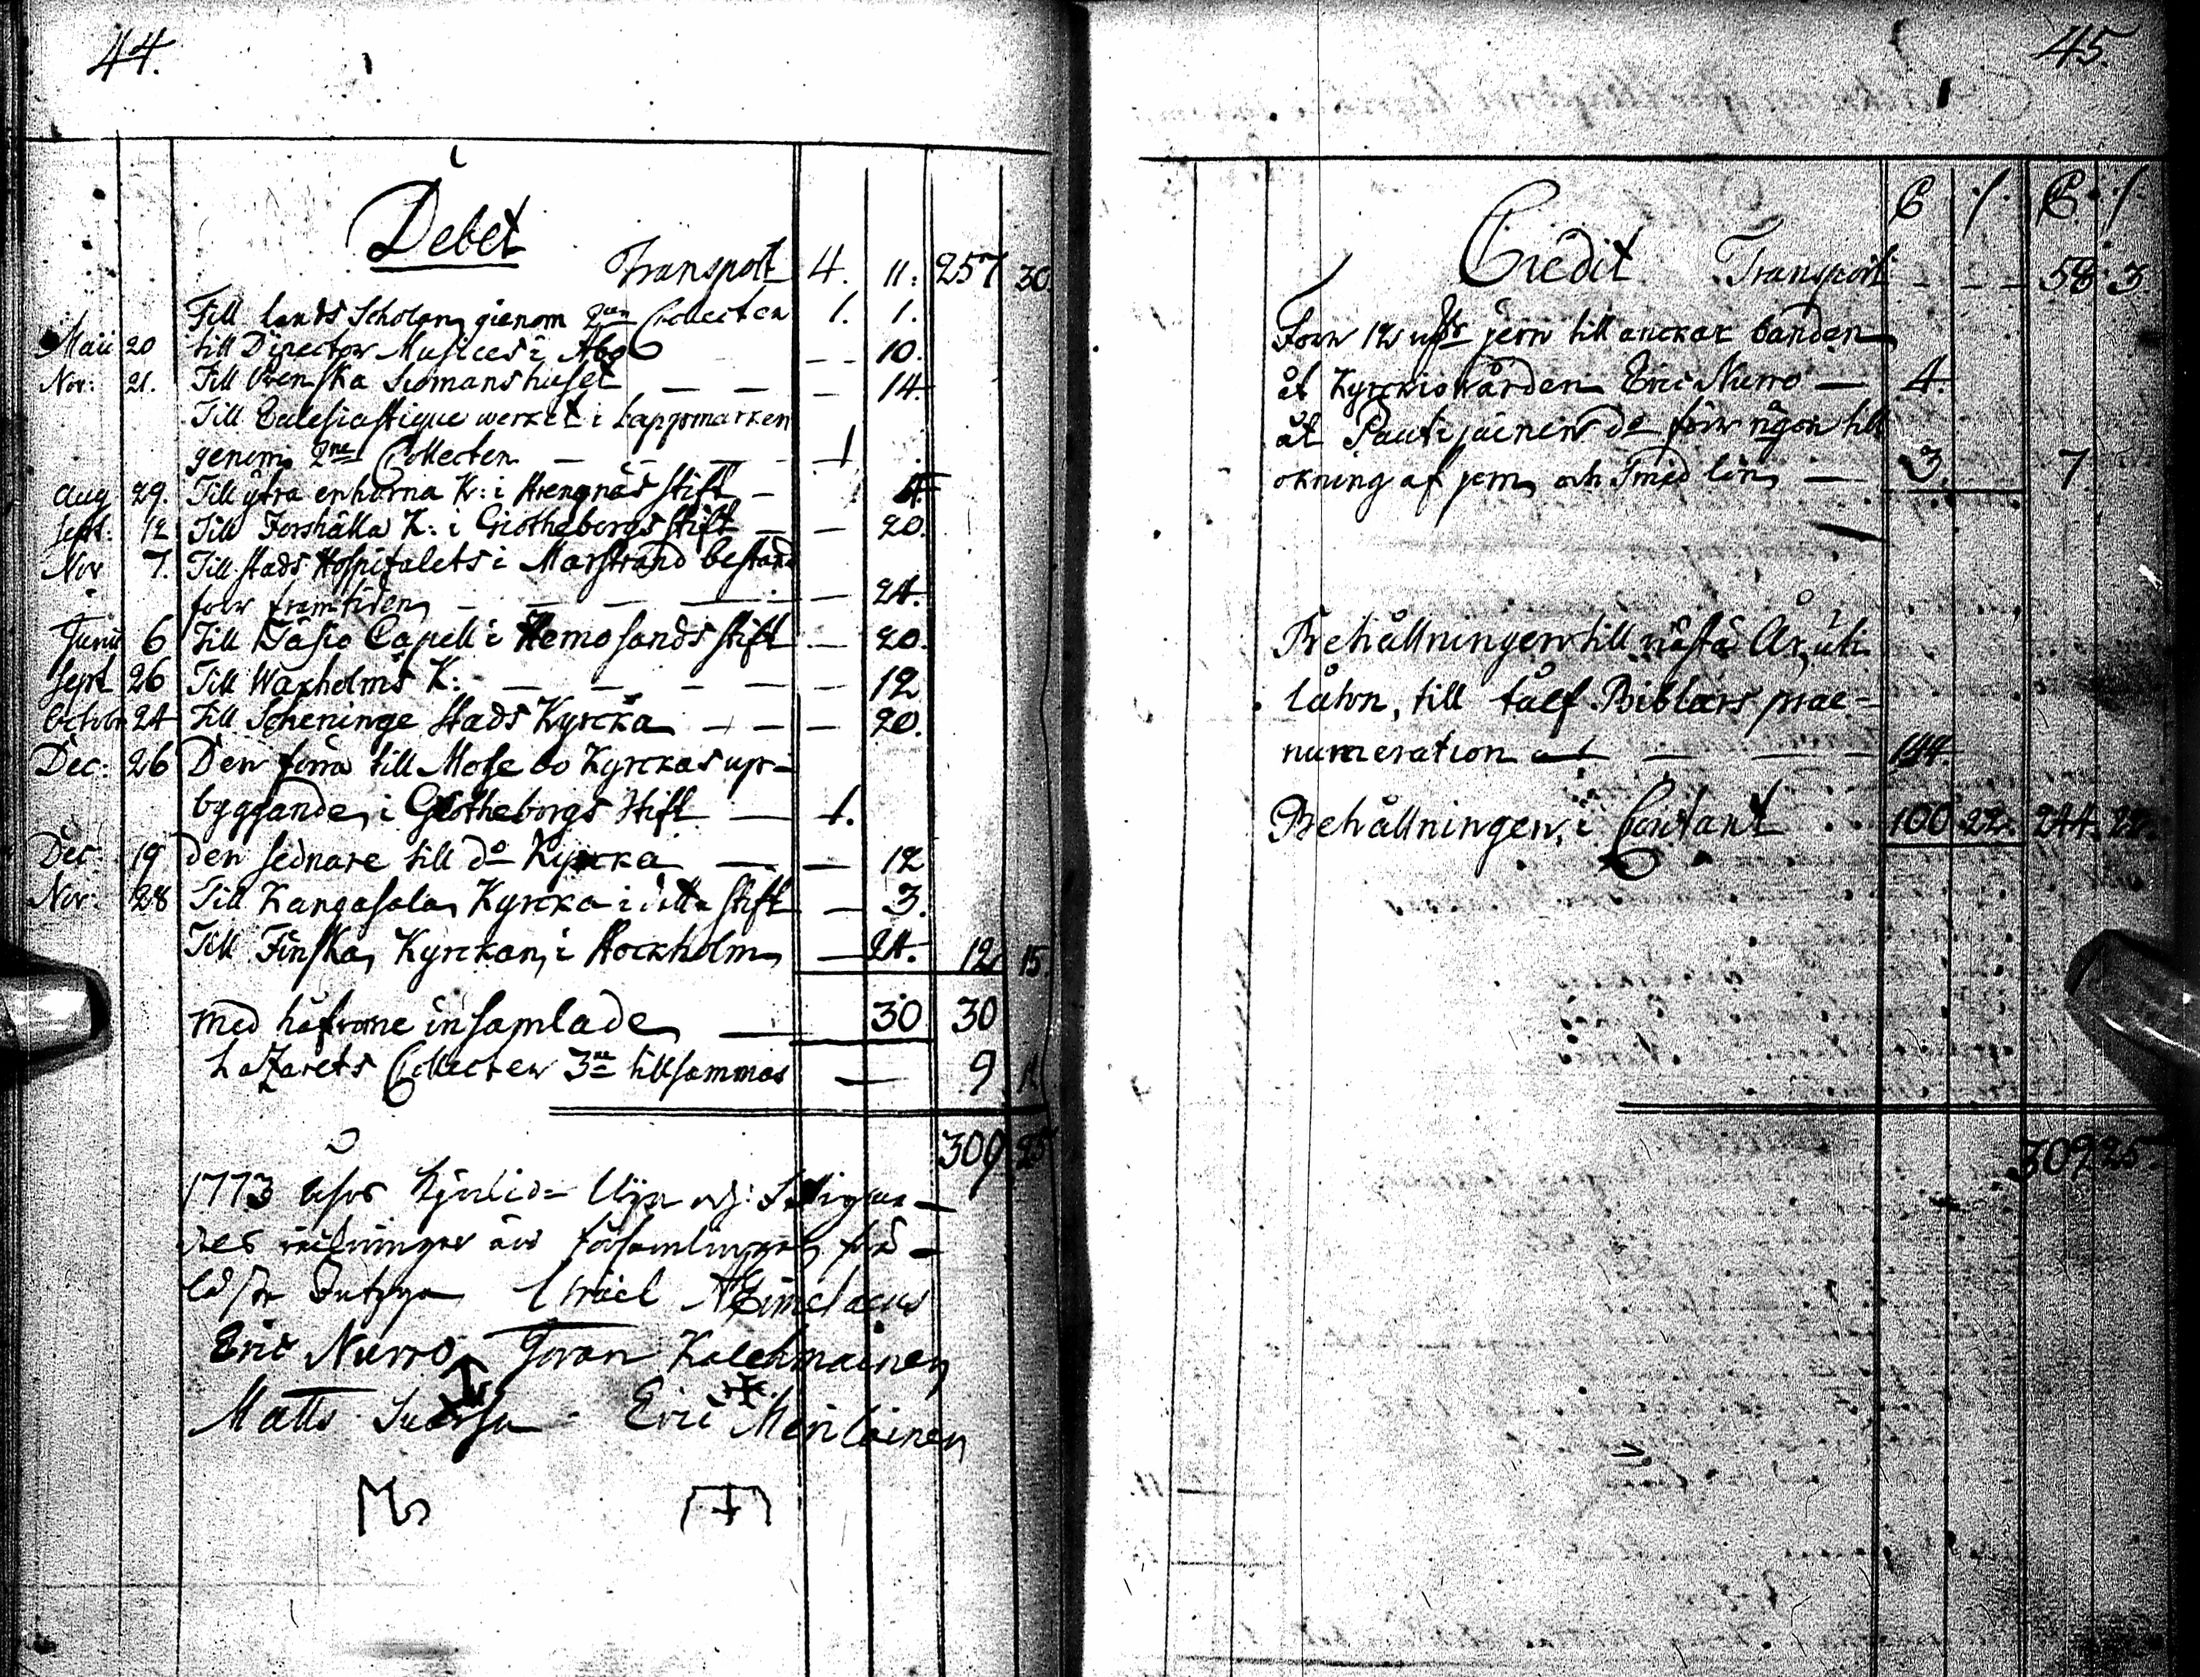 44.
Debet
Transport 4. 11: 257 30.
Till lands Scholan genom 2ne Collecter 1. 1.
Maii 20 till Director Musices i Åbo — 10.
Nov: 21. Till Svenska Siomanshuset — — — 14.
Till Eclesiastique werket i Lappmarken
genom 2ne Collecten — — — 1
Aug 29. Till ytra enhörna K: i Strengnäs Stift —
Sept: 12 Till Forshälla K: i Giötheborgs Stift — — 20.
Nov 7. Till Stads Hospitalets i Marstrand bestånd
för framtiden — — — — 24.
Junii 6 Till Tåsiö Capell i Hernosands Stift — 20.
Sept 26 Till Waxholms K: — — — — 12
Octobr 24 Till Scheninge Stads Kyrcka — — — 20.
Dec: 26 Den förra till Kyrckas up-
byggande, i Giötheborgs Stift — 1.
Dec: 19 den sednare till do Kyrcka — — 12
Nov: 28 Till Kangasala Kyrcka i detta Stift — 3.
Till Finska Kyrckan i Stockholm — 24. 12 15
med håfvarne insamlade — 30 30
Lazarets Collecter 3ne tillsammas — 9 11
309 25
1773 års
räkningar församlingens
Israel
Eric Nurro Göran Kolehmainen
Matts Eric
45.
Credit Transport — — — 58 3.
jern till anckar banden
åt Kyrckiowärden Eric Nurro — 4.
åt do för någon till
okning af jern och Smed lön — 3. 7.
Behållningen till nästa År, uti
låhn, till tålf Biblars prae-
numeration — — — 144.
Behållningen i Contant 100 22. 244. 22.
309 25.